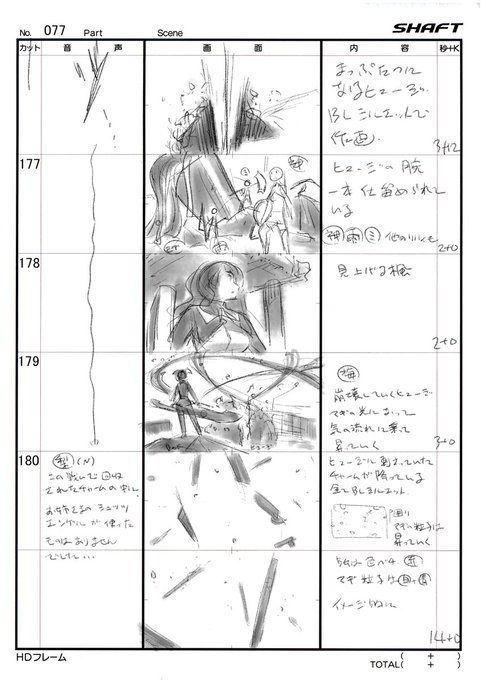 No. 077 Part Scene SHAFT
カット 音声 画面 内容 秒+K
まっぷたつに
なるヒュージ
BLシルエットで
作画.
3+12
177
ヒュージの腕
一本仕留められて
いる
神 雨 ミ 他のリリィも
2+0
178
見上げる楓
2+0
179
梅
崩壊していくヒュージ
マギの光になって
気の流れに乗って
昇っていく
3+0
180
梨 (N)
この戦いで回収
されたチャームの中に
お姉さまの
が使った
ものはありません
でした…
ヒュージに刺さっていた
チャームが降っている
全てBLシルエット
マギ粒子は
昇っていく
マギ粒子は
イメージ的に
14+0
HDフレーム
( + )
TOTAL( + )